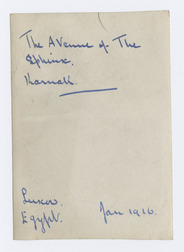 The Avenue of The
Sphinx.
Karnak.
Luxor.
Egypt. Jan 1916.